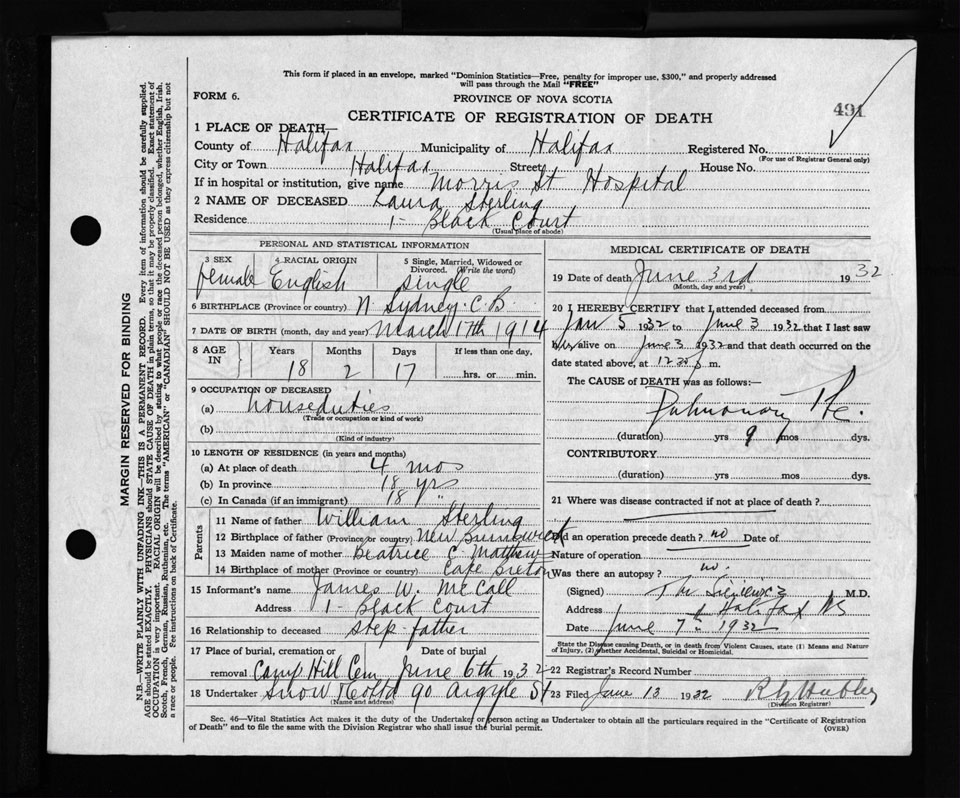 This form if placed in an envelope, marked "Dominion Statistics—Free, penalty for improper use, $300," and properly addressed
will pass through the Mail "FREE"
FORM 6.
PROVINCE OF NOVA SCOTIA
491
CERTIFICATE OF REGISTRATION OF DEATH
1 PLACE OF DEATH—
County of Halifax Municipality of Halifax Registered No.
(For use of Registrar General only)
City or Town Halifax Street House No.
If in hospital or institution, give name Morris St Hospital
2 NAME OF DECEASED Laura Sterling
Residence 1- Black Court
(Usual place of abode)
PERSONAL AND STATISTICAL INFORMATION
3 SEX 4 RACIAL ORIGIN 5 Single, Married, Widowed or
Divorced. (Write the word)
female English single
6 BIRTHPLACE (Province or country) N Sydney C.B
7 DATE OF BIRTH (month, day and year) March 17th 1914
8 AGE IN Years Months Days If less than one day.
18 2 17 hrs. or min.
9 OCCUPATION OF DECEASED
(a) houseduties
(Trade or occupation or kind of work)
(b)
(Kind of industry)
10 LENGTH OF RESIDENCE (in years and months)
(a) At place of death 4 mos
(b) In province 18 yrs
(c) In Canada (if an immigrant) 18 "
Parents
11 Name of father William Sterling
12 Birthplace of father (Province or country) New Brunswick
13 Maiden name of mother Beatrice E. Mathews
14 Birthplace of mother (Province or country) Cape Breton
15 Informant's name James W. McCall
Address 1- Black Court
16 Relationship to deceased Step-father
17 Place of burial, cremation or Date of burial
removal Camp Hill Cem June 6th 1932
18 Undertaker Snow 90 Argyle St
(Name and address)
MEDICAL CERTIFICATE OF DEATH
19 Date of death June 3rd 1932
(Month, day and year)
20 I HEREBY CERTIFY that I attended deceased from
Jan 5 1932 to June 3 1932 that I last saw
her alive on June 3 1932 and that death occurred on the
date stated above, at m.
The CAUSE OF DEATH was as follows:—
Pulmonary
(duration) yrs 9 mos dys.
CONTRIBUTORY
(duration) yrs mos dys.
21 Where was disease contracted if not at place of death?
Did an operation precede death? no Date of
Nature of operation
Was there an autopsy? no.
(Signed) M.D.
Address Halifax NS
Date June 7th 1932
State the Disease causing Death, or in death from Violent Causes, state (1) Means and Nature
of Injury, (2) whether Accidental, Suicidal or Homicidal.
22 Registrar's Record Number
23 Filed June 13 1932
(Division Registrar)
Sec. 46—Vital Statistics Act makes it the duty of the Undertaker or person acting as Undertaker to obtain all the particulars required in the "Certificate of Registration
of Death" and to file the same with the Division Registrar who shall issue the burial permit.
(OVER)
MARGIN RESERVED FOR BINDING
N.B.—WRITE PLAINLY WITH UNFADING INK—THIS IS A PERMANENT RECORD. Every item of information should be carefully supplied.
AGE should be stated EXACTLY. PHYSICIANS should STATE CAUSE OF DEATH in plain terms, so that it may be properly classified. Exact statement of
OCCUPATION is very important. RACIAL ORIGIN will be described by stating to what people or race the deceased person belonged, whether English, Irish,
Scotch, French, German, Russian, Ruthenian, etc. The terms "AMERICAN" or "CANADIAN" SHOULD NOT BE USED as they express citizenship but not
a race or people. Fee instructions on back of Certificate.